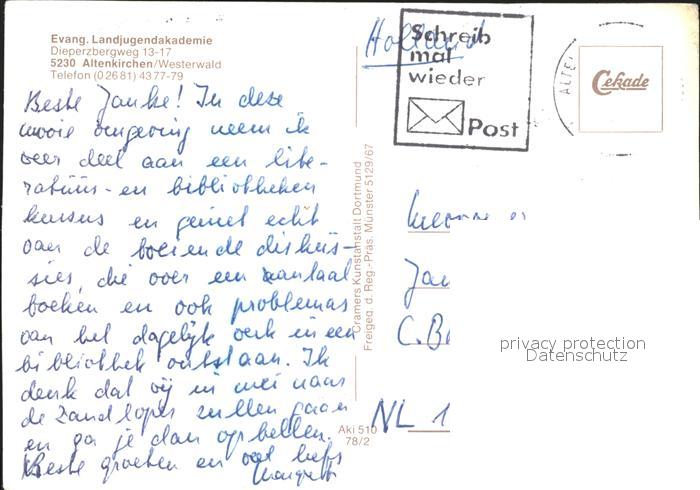 Evang. Landjugendakademie
Dieperzbergweg 13-17
5230 Altenkirchen/Westerwald
Telefon (0 26 81) 43 77-79
Beste Janke! In deze
mooie omgeving neem ik
weer deel aan een lite-
ratuur- en bibliotheken
kursus en geniet echt
van de boeiende diskus-
sies, die over een aantal
boeken en ook problemas
van het dagelijk werk in een
bibliothek ontstaan. Ik
denk dat wij in mei naar
de Zandloper zullen gaan
en ga je dan opbellen.
Beste groeten en veel liefs
Margrett
Cramers Kunstanstalt Dortmund
Freigeg. d. Reg.-Präs. Münster 5129/67
Aki 510
78/2
Holland
Schreib
mal
wieder
Post
ALTE
Cekade
Jan
C. B
NL 1
privacy protection
Datenschutz